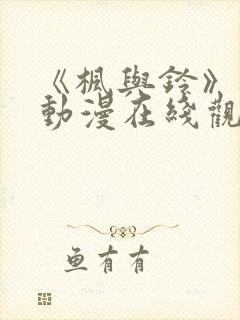 《楓與鈴》
動漫在綫觀
鱼有有